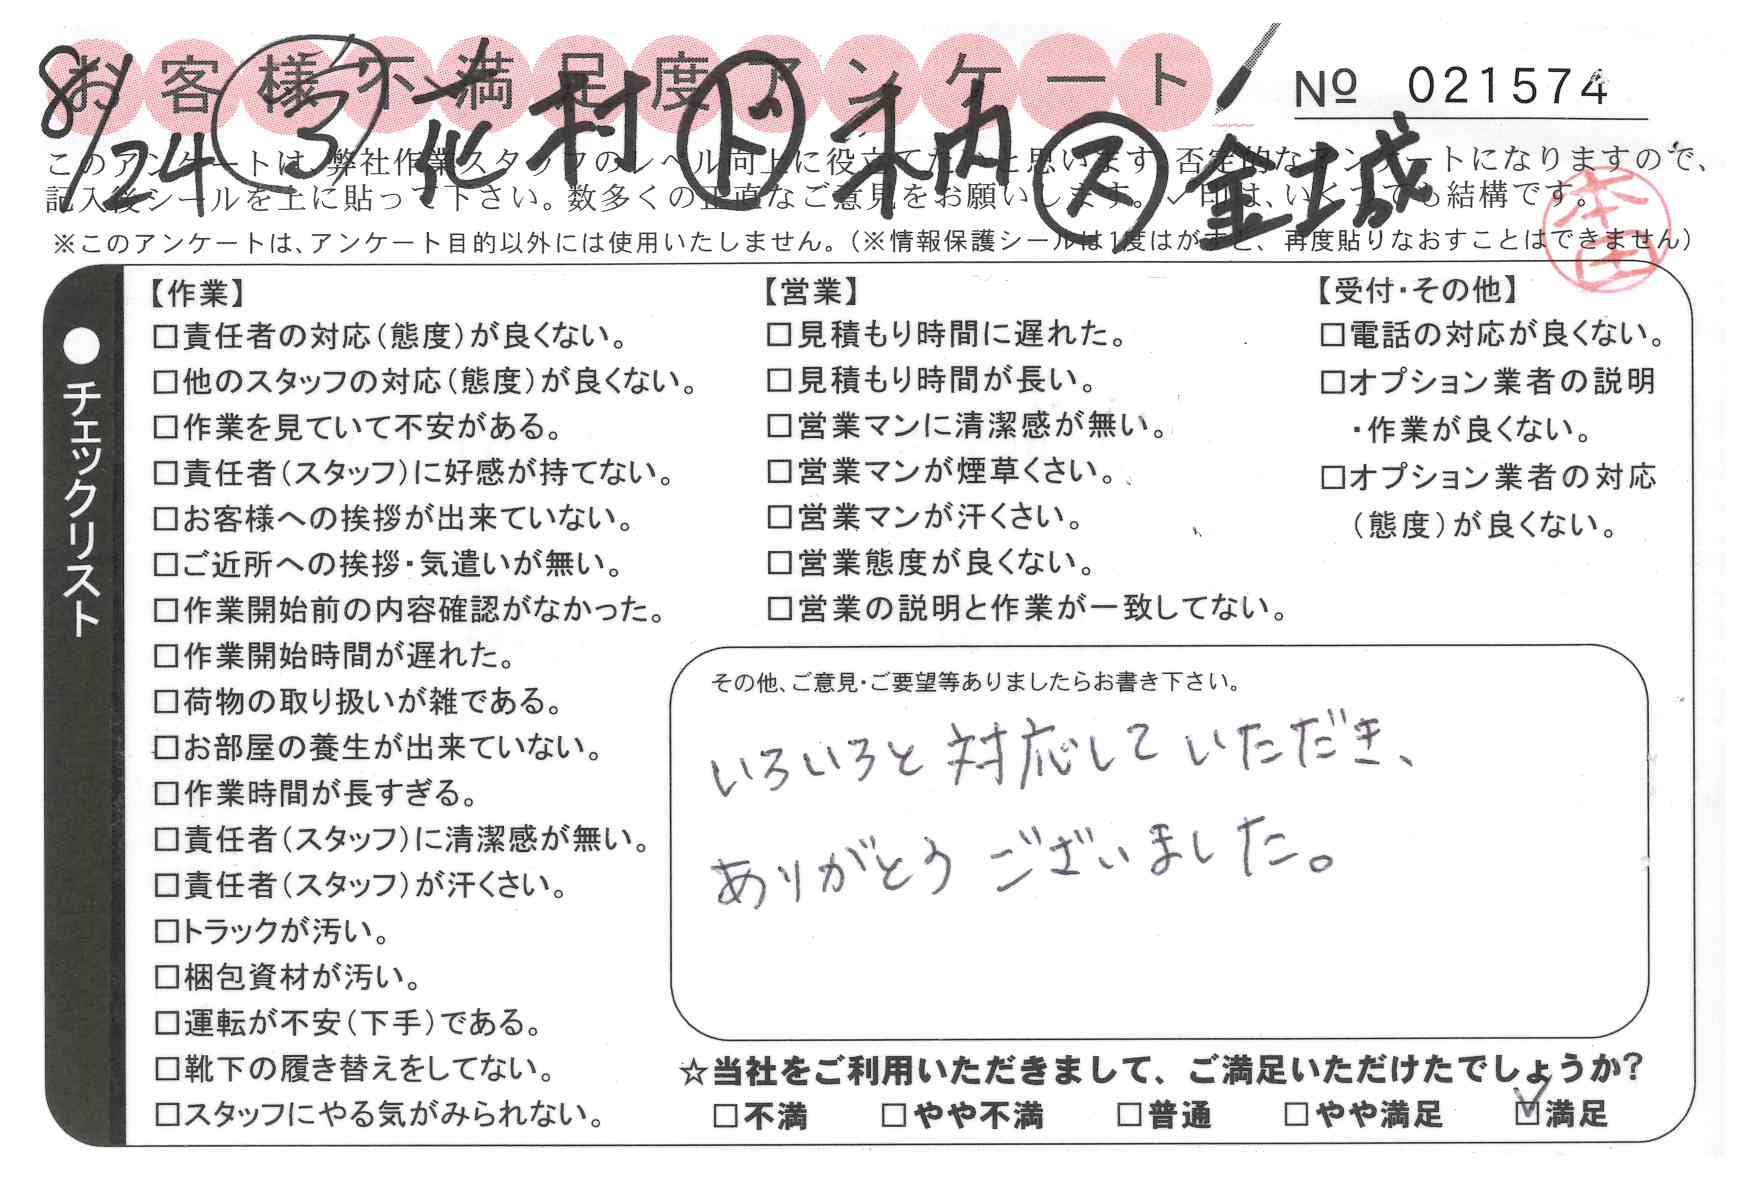 お客様不満足度アンケート
№ 021574
8/24 ㋒ 花村 ㋣ 木内 ㋜ 金城
このアンケートは、弊社作業スタッフのレベル向上に役立てたいと思います。否定的なアンケートになりますので、
記入後シールを上に貼って下さい。数多くの正直なご意見をお願いします。✓印は、いくつでも結構です。
※このアンケートは、アンケート目的以外には使用いたしません。（※情報保護シールは1度はがすと、再度貼りなおすことはできません）
本田
●チェックリスト
【作業】
□責任者の対応（態度）が良くない。
□他のスタッフの対応（態度）が良くない。
□作業を見ていて不安がある。
□責任者（スタッフ）に好感が持てない。
□お客様への挨拶が出来ていない。
□ご近所への挨拶・気遣いが無い。
□作業開始前の内容確認がなかった。
□作業開始時間が遅れた。
□荷物の取り扱いが雑である。
□お部屋の養生が出来ていない。
□作業時間が長すぎる。
□責任者（スタッフ）に清潔感が無い。
□責任者（スタッフ）が汗くさい。
□トラックが汚い。
□梱包資材が汚い。
□運転が不安（下手）である。
□靴下の履き替えをしてない。
□スタッフにやる気がみられない。
【営業】
□見積もり時間に遅れた。
□見積もり時間が長い。
□営業マンに清潔感が無い。
□営業マンが煙草くさい。
□営業マンが汗くさい。
□営業態度が良くない。
□営業の説明と作業が一致してない。
【受付・その他】
□電話の対応が良くない。
□オプション業者の説明
・作業が良くない。
□オプション業者の対応
（態度）が良くない。
その他、ご意見・ご要望等ありましたらお書き下さい。
いろいろと対応していただき、
ありがとうございました。
☆当社をご利用いただきまして、ご満足いただけたでしょうか？
□不満 □やや不満 □普通 □やや満足 ☑満足